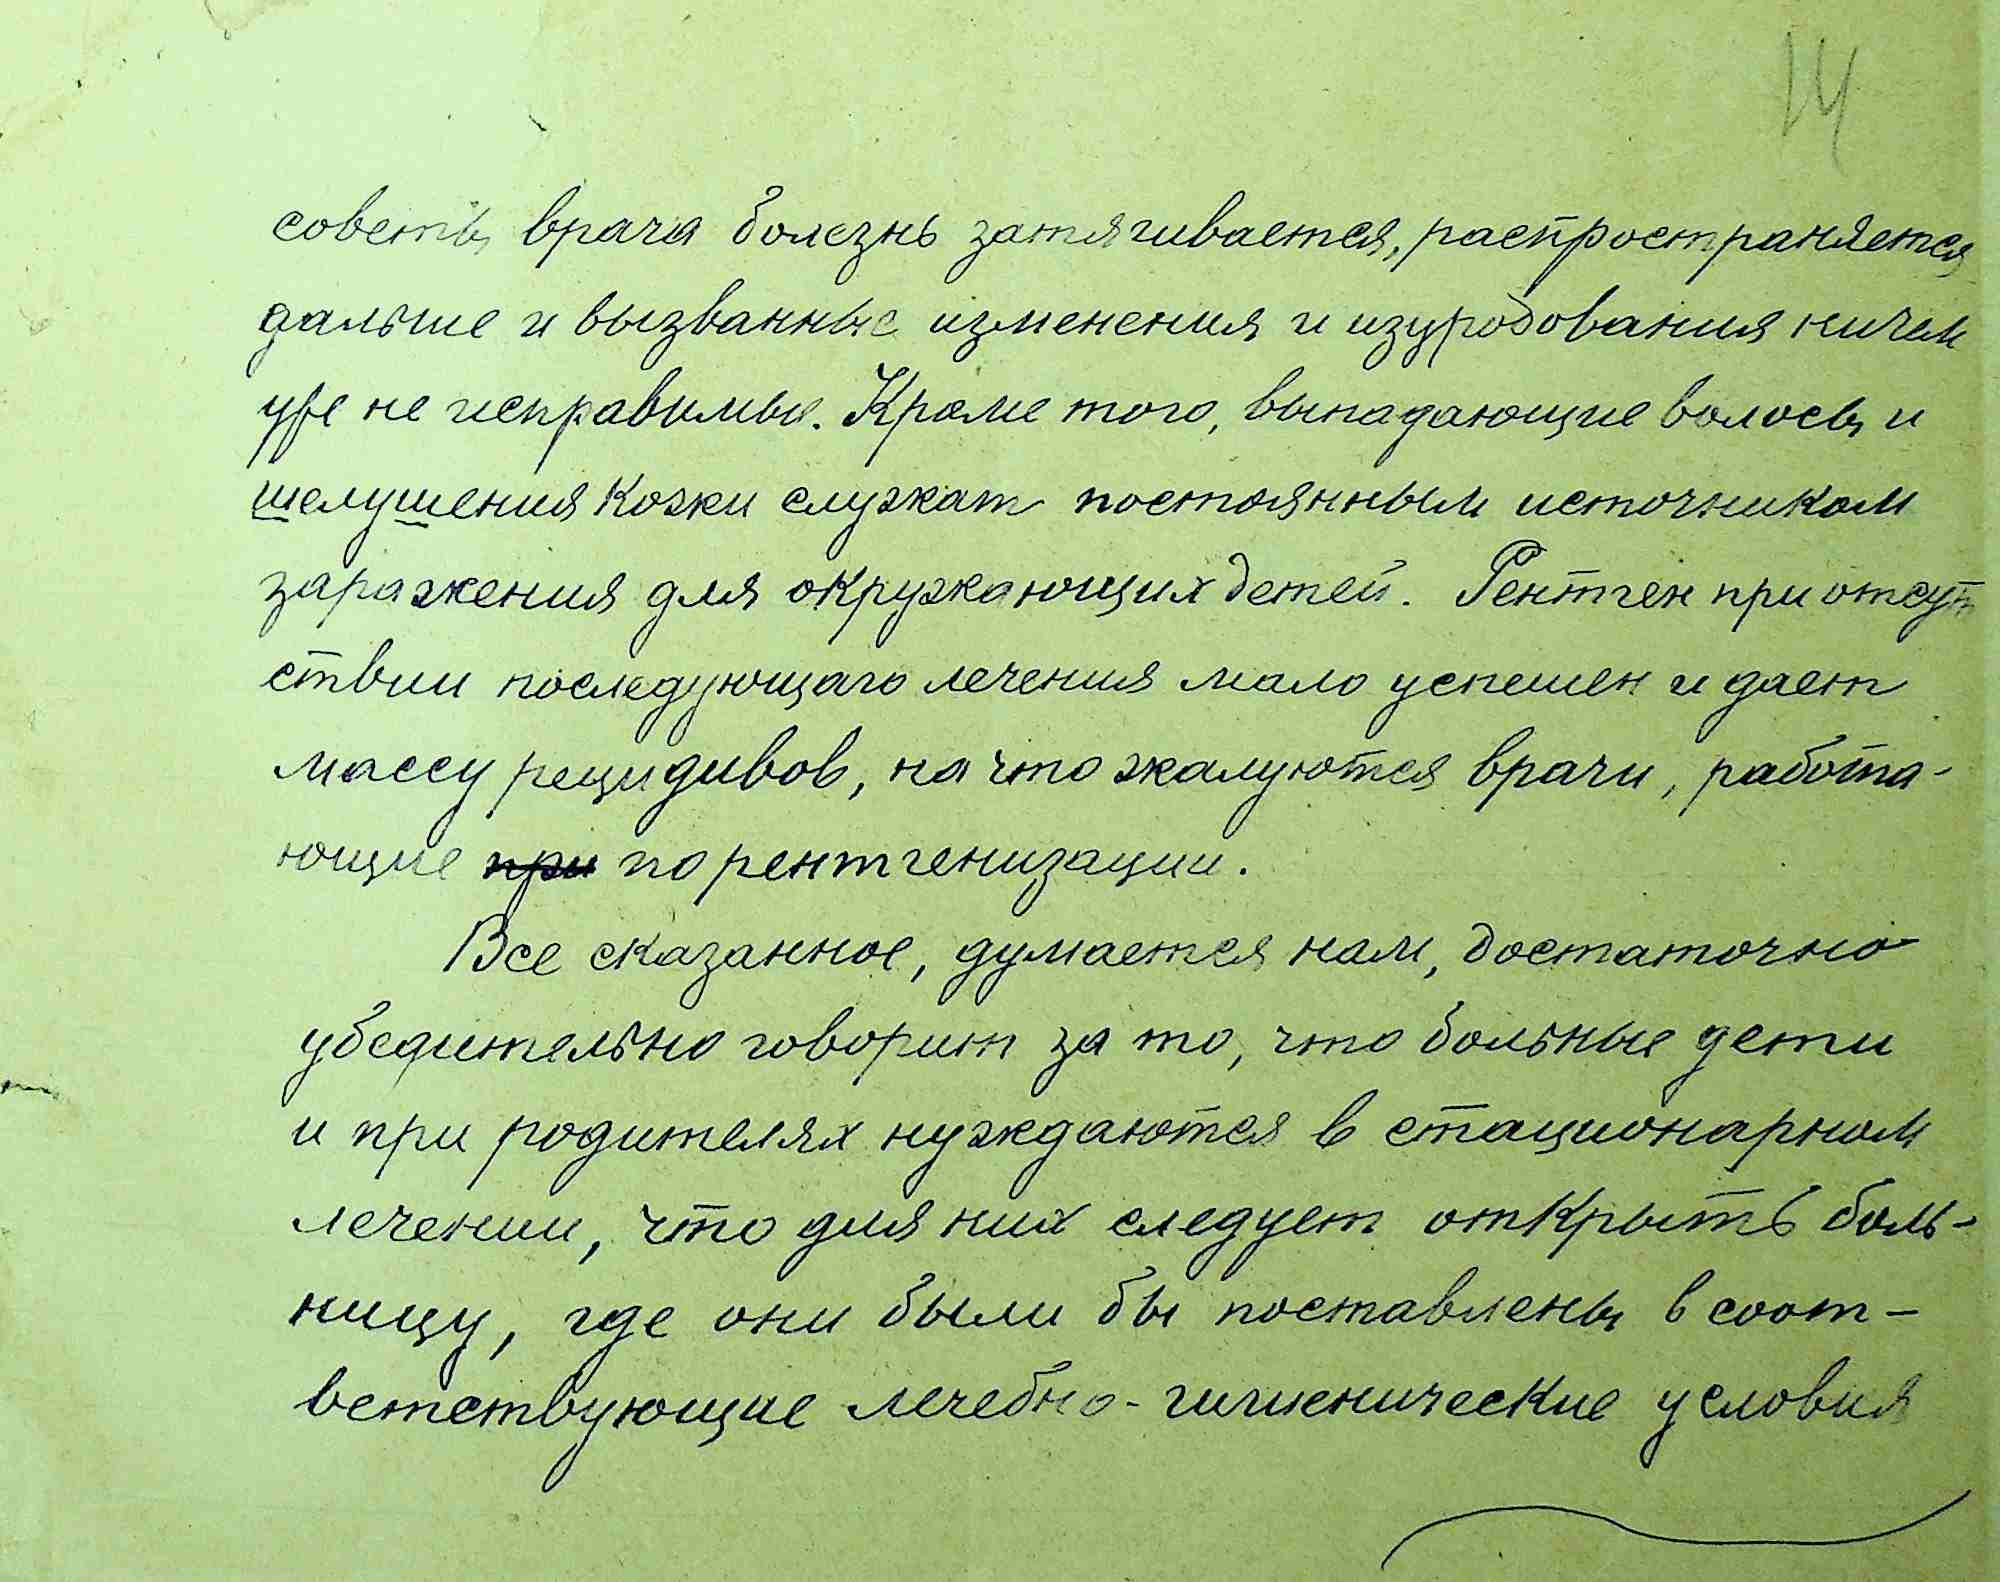 14
советы врача болезнь затягивается, распространяется
дальше и вызванные изменения и изуродования ничем
уже не исправимы. Кроме того, выпадающие волосы и
шелушения кожи служат постоянным источником
заражения для окружающих детей. Рентген при отсут
ствии последующаго лечения мало успешен и дает
массу рецидивов, на что жалуются врачи, работа-
ющие при по рентгенизации.
Все сказанное, думается нам, достаточно
убедительно говорит за то, что больные дети
и при родителях нуждаются в стационарном
лечении, что для них следует открыть боль-
ницу, где они были бы поставлены в соот-
ветствующие лечебно-гигиенические условия